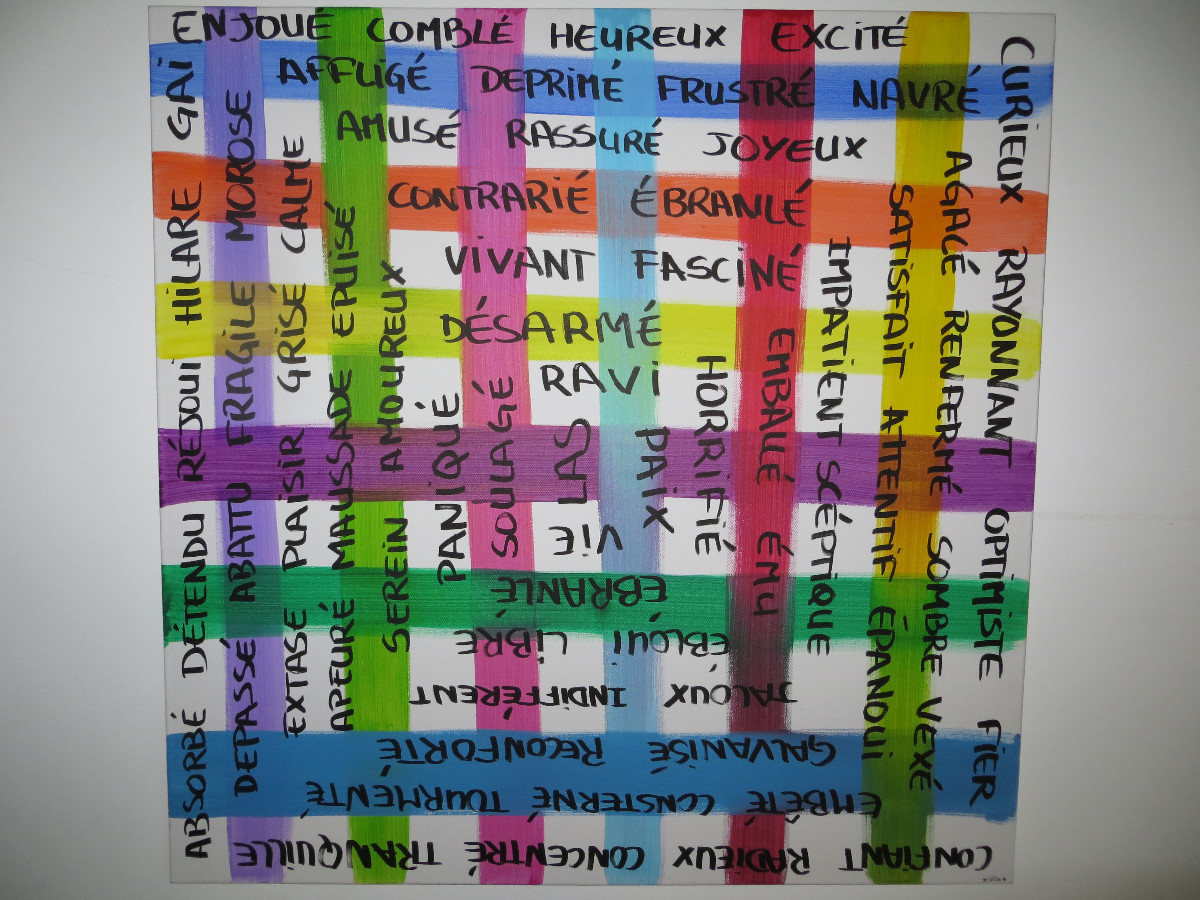 ENJOUÉ COMBLÉ HEUREUX EXCITÉ
CURIEUX RAYONNANT OPTIMISTE FIER
CONFIANT RADIEUX CONCENTRÉ TRANQUILLE
ABSORBÉ DÉTENDU RÉJOUI HILARE GAI
AFFLIGÉ DEPRIMÉ FRUSTRÉ NAVRÉ
AGACÉ RENFERMÉ SOMBRE VEXÉ
EMBÊTÉ CONSTERNÉ TOURMENTÉ
DEPASSÉ ABATTU FRAGILE MOROSE
AMUSÉ RASSURÉ JOYEUX
SATISFAIT ATTENTIF ÉPANOUI
GALVANISÉ RECONFORTÉ
EXTASE PLAISIR GRISÉ CALME
CONTRARIÉ ÉBRANLÉ
IMPATIENT SCÉPTIQUE
JALOUX INDIFFÉRENT
APEURÉ MAUSSADE EPUISÉ
VIVANT FASCINÉ
EMBALLÉ ÉMU
EBLOUI LIBRÉ
SEREIN AMOUREUX
DÉSARMÉ
HORRIFIÉ
EBRANLÉ
PANIQUÉ
RAVI
PAIX
VIE
SOULAGÉ
LAS